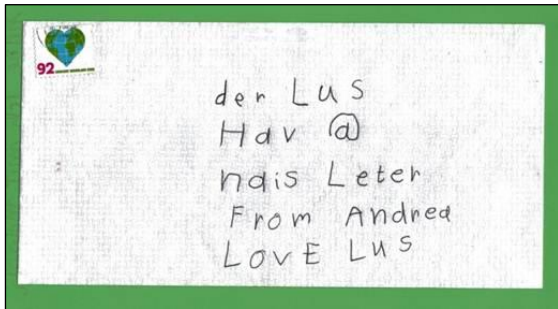 92
der Lus
Hav @
nais Leter
From Andrea
LOVE LuS